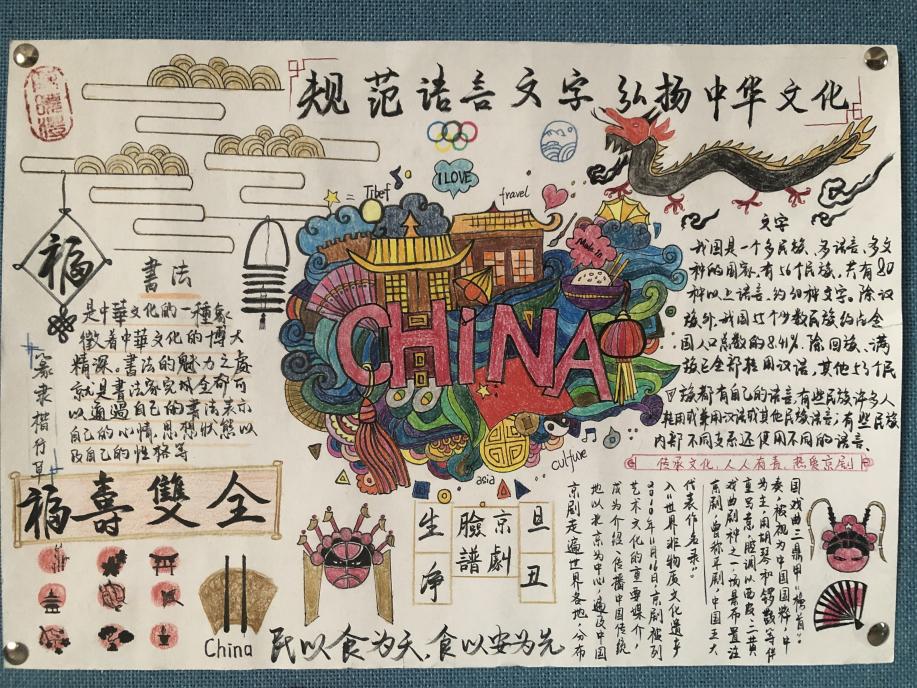 规范语言文字 弘扬中华文化
I LOVE
Tibet
travel
Made in
CHINA
asia
culture
福
書法
是中華文化的一種象
徵着中華文化的博大
精深。書法的魅力之處
就是書法家完成全都可
以通過自己的書法表示
自己的心情.思想狀態以
及自己的性格等
篆隶楷行草
福壽雙全
文字
我国是一个多民族、多语言、多文
种的国家,有56个民族,共有80
种以上语言,约30种文字。除汉
族外,我国55个少数民族约占全
国人口总数的8.41%,除回族、满
族已全部转用汉语,其他53个民
族都有自己的语言,有些民族许多人
转用或兼用汉语或其他民族语言;有些民族
内部不同支系还使用不同的语言.
传承文化,人人有责,热爱京剧
生
净
京劇
臉譜
旦
丑
京剧走遍世界各地,分布
地以北京为中心,遍及中国
成为介绍、传播中国传统
艺术文化的重要媒介,
2010年11月16日,京剧被列
入《世界非物质文化遗产
代表作名录."
京剧,曾称平剧,中国五大
戏曲剧种之一,场景布置注
重写意,腔调以西皮、二黄
为主,用胡琴和锣鼓等伴
奏,被视为中国国粹,中
国戏曲三鼎甲"榜首".
China
民以食为天,食以安为先